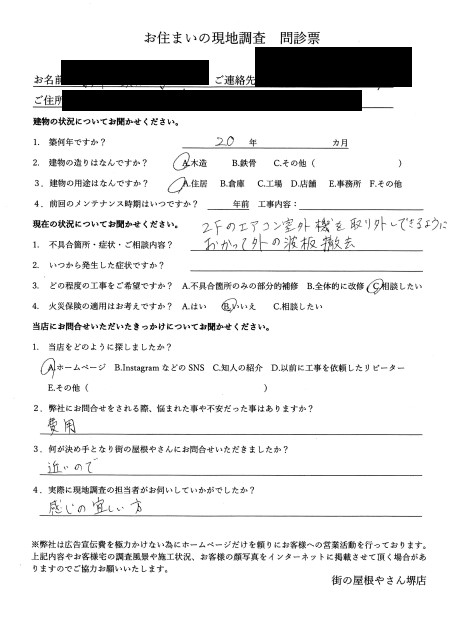 お住まいの現地調査　問診票
お名前
ご連絡先
ご住所
建物の状況についてお聞かせください。
1. 築年何ですか？ 20 年 カ月
2. 建物の造りはなんですか？ A.木造 B.鉄骨 C.その他（ ）
3. 建物の用途はなんですか？ A.住居 B.倉庫 C.工場 D.店舗 E.事務所 F.その他
4. 前回のメンテナンス時期はいつですか？ 年前 工事内容：
現在の状況についてお聞かせください。
2Fのエアコン室外機を取り外しできるように
1. 不具合箇所・症状・ご相談内容？ おかって外の波板撤去
2. いつから発生した症状ですか？
3. どの程度の工事をご希望ですか？ A.不具合箇所のみの部分的補修 B.全体的に改修 C.相談したい
4. 火災保険の適用はお考えですか？ A.はい B.いいえ C.相談したい
当店にお問合せいただいたきっかけについてお聞かせください。
1. 当店をどのように探しましたか？
A.ホームページ B.Instagram などの SNS C.知人の紹介 D.以前に工事を依頼したリピーター
E.その他（ ）
2. 弊社にお問合せをされる際、悩まれた事や不安だった事はありますか？
費用
3. 何が決め手となり街の屋根やさんにお問合せいただきましたか？
近いので
4. 実際に現地調査の担当者がお伺いしていかがでしたか？
感じの宜しい方
※弊社は広告宣伝費を極力かけない為にホームページだけを頼りにお客様への営業活動を行っております。
上記内容やお客様宅の調査風景や施工状況、お客様の顔写真をインターネットに掲載させて頂く場合があ
りますのでご協力お願いいたします。
街の屋根やさん堺店